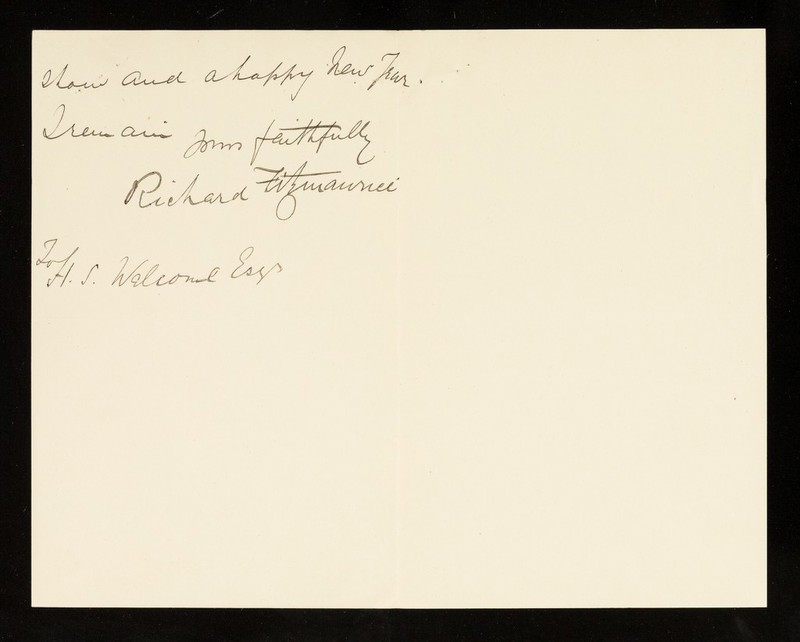 show and a happy New Year.
I remain yours faithfully
Richard Fitzmaurice
To/
H. S. Welcome Esqr